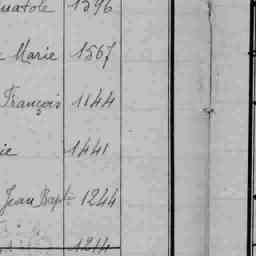 1396
Marie 1567
François 1144
1441
Jean Bapt. 1244
1214